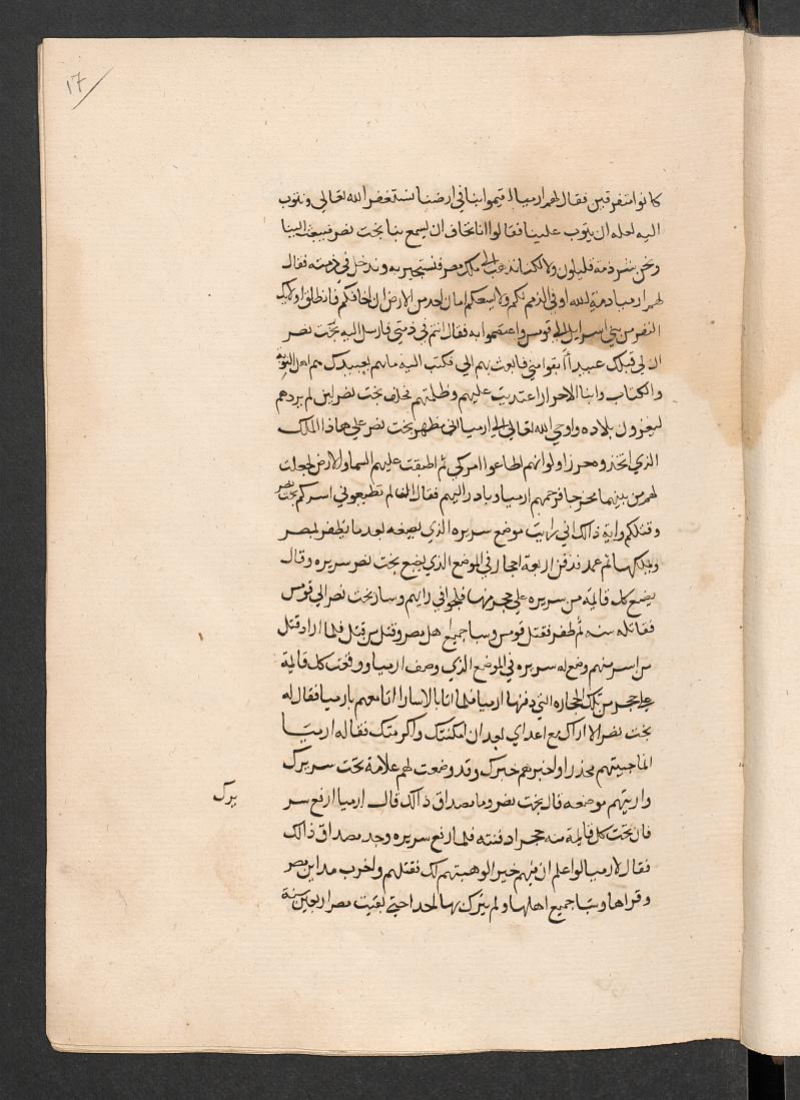 ١٧
كانوا متفرقين فقال لهم ارميا اقيموا بنا في ارضنا نستغفر الله تعالى ونتوب
اليه لعله ان يتوب علينا فقالوا انا نخاف ان يسمع بنا بخت نصر فيبعث الينا
ونحن شرذمة قليلون ولاكننا نذهب الى ملك مصر فنستجير به وندخل في ذمته فقال
لهم ارميا ذمة الله اوفى الذمم لكم ولا يسعكم امان احد من الارض ان اخافكم فانطلق اولايك
النفر من بني اسراييل الى قومس واعتصموا به فقال انتم في ذمتي فارسل اليه بخت نصر
ان لي قبلك عبيدا ابقوا مني فابعث بهم الي فكتب اليه ما هم بعبيدك هم اهل النبوة
والكتاب وابنا الاحرار اعتديت عليهم وظلمتهم فحلف بخت نصر لين لم يردهم
ليغزون بلاده واوحى الله تعالى الى ارميا اني مظهر بخت نصر على هاذا الملك
الذي اتخذوه حرزا ولو انهم اطاعوا امري ثم اطبقت عليهم السما والارض لجعلت
لهم من بينهما مخرجا فرحمهم ارميا وبادر اليهم فقال لهم ان لم تطيعوني اسركم بخت نصر
وقتلكم واية ذالك اني رايت موضع سريره الذي يضعه بعد ما يظفر لمصر
ويملكها ثم عمد فدفن اربعة احجار في الموضع الذي يضع بخت نصر سريره وقال
يضع كل قايمة من سريره على حجر منها فلجوا في رايهم وسار بخت نصر الى قومس
فقاتله سنه ثم ظفر فقتل قومس وسبا جميع اهل مصر وقتل من قتل فلما اراد قتل
من اسر منهم وضع له سريره في الموضع الذي وصف ارميا ووقعت كل قايمة
على حجر من تلك الحجاره التي دفنها ارميا فلما اتا بالاسارا اتا معهم بارميا فقال له
بخت نصر الا اراك مع اعداي بعد ان امنتك واكرمتك فقال له ارميا
انما جيتهم محذرا واخبرهم خبرك وقد وضعت لهم علامة تحت سريرك
واريتهم موضعه قال بخت نصر وما مصداق ذالك قال ارميا ارفع سر
يرك
فان تحت كل قايمة منه حجرا دفنته فلما رفع سريره وجد مصداق ذالك
فقال لارميا لو اعلم ان فيهم خيرا لوهبتهم لك فقتلهم واخرب مداين مصر
وقراها وسبا جميع اهلها ولم يترك بها احدا حتى بقيت مصر اربعين سنة